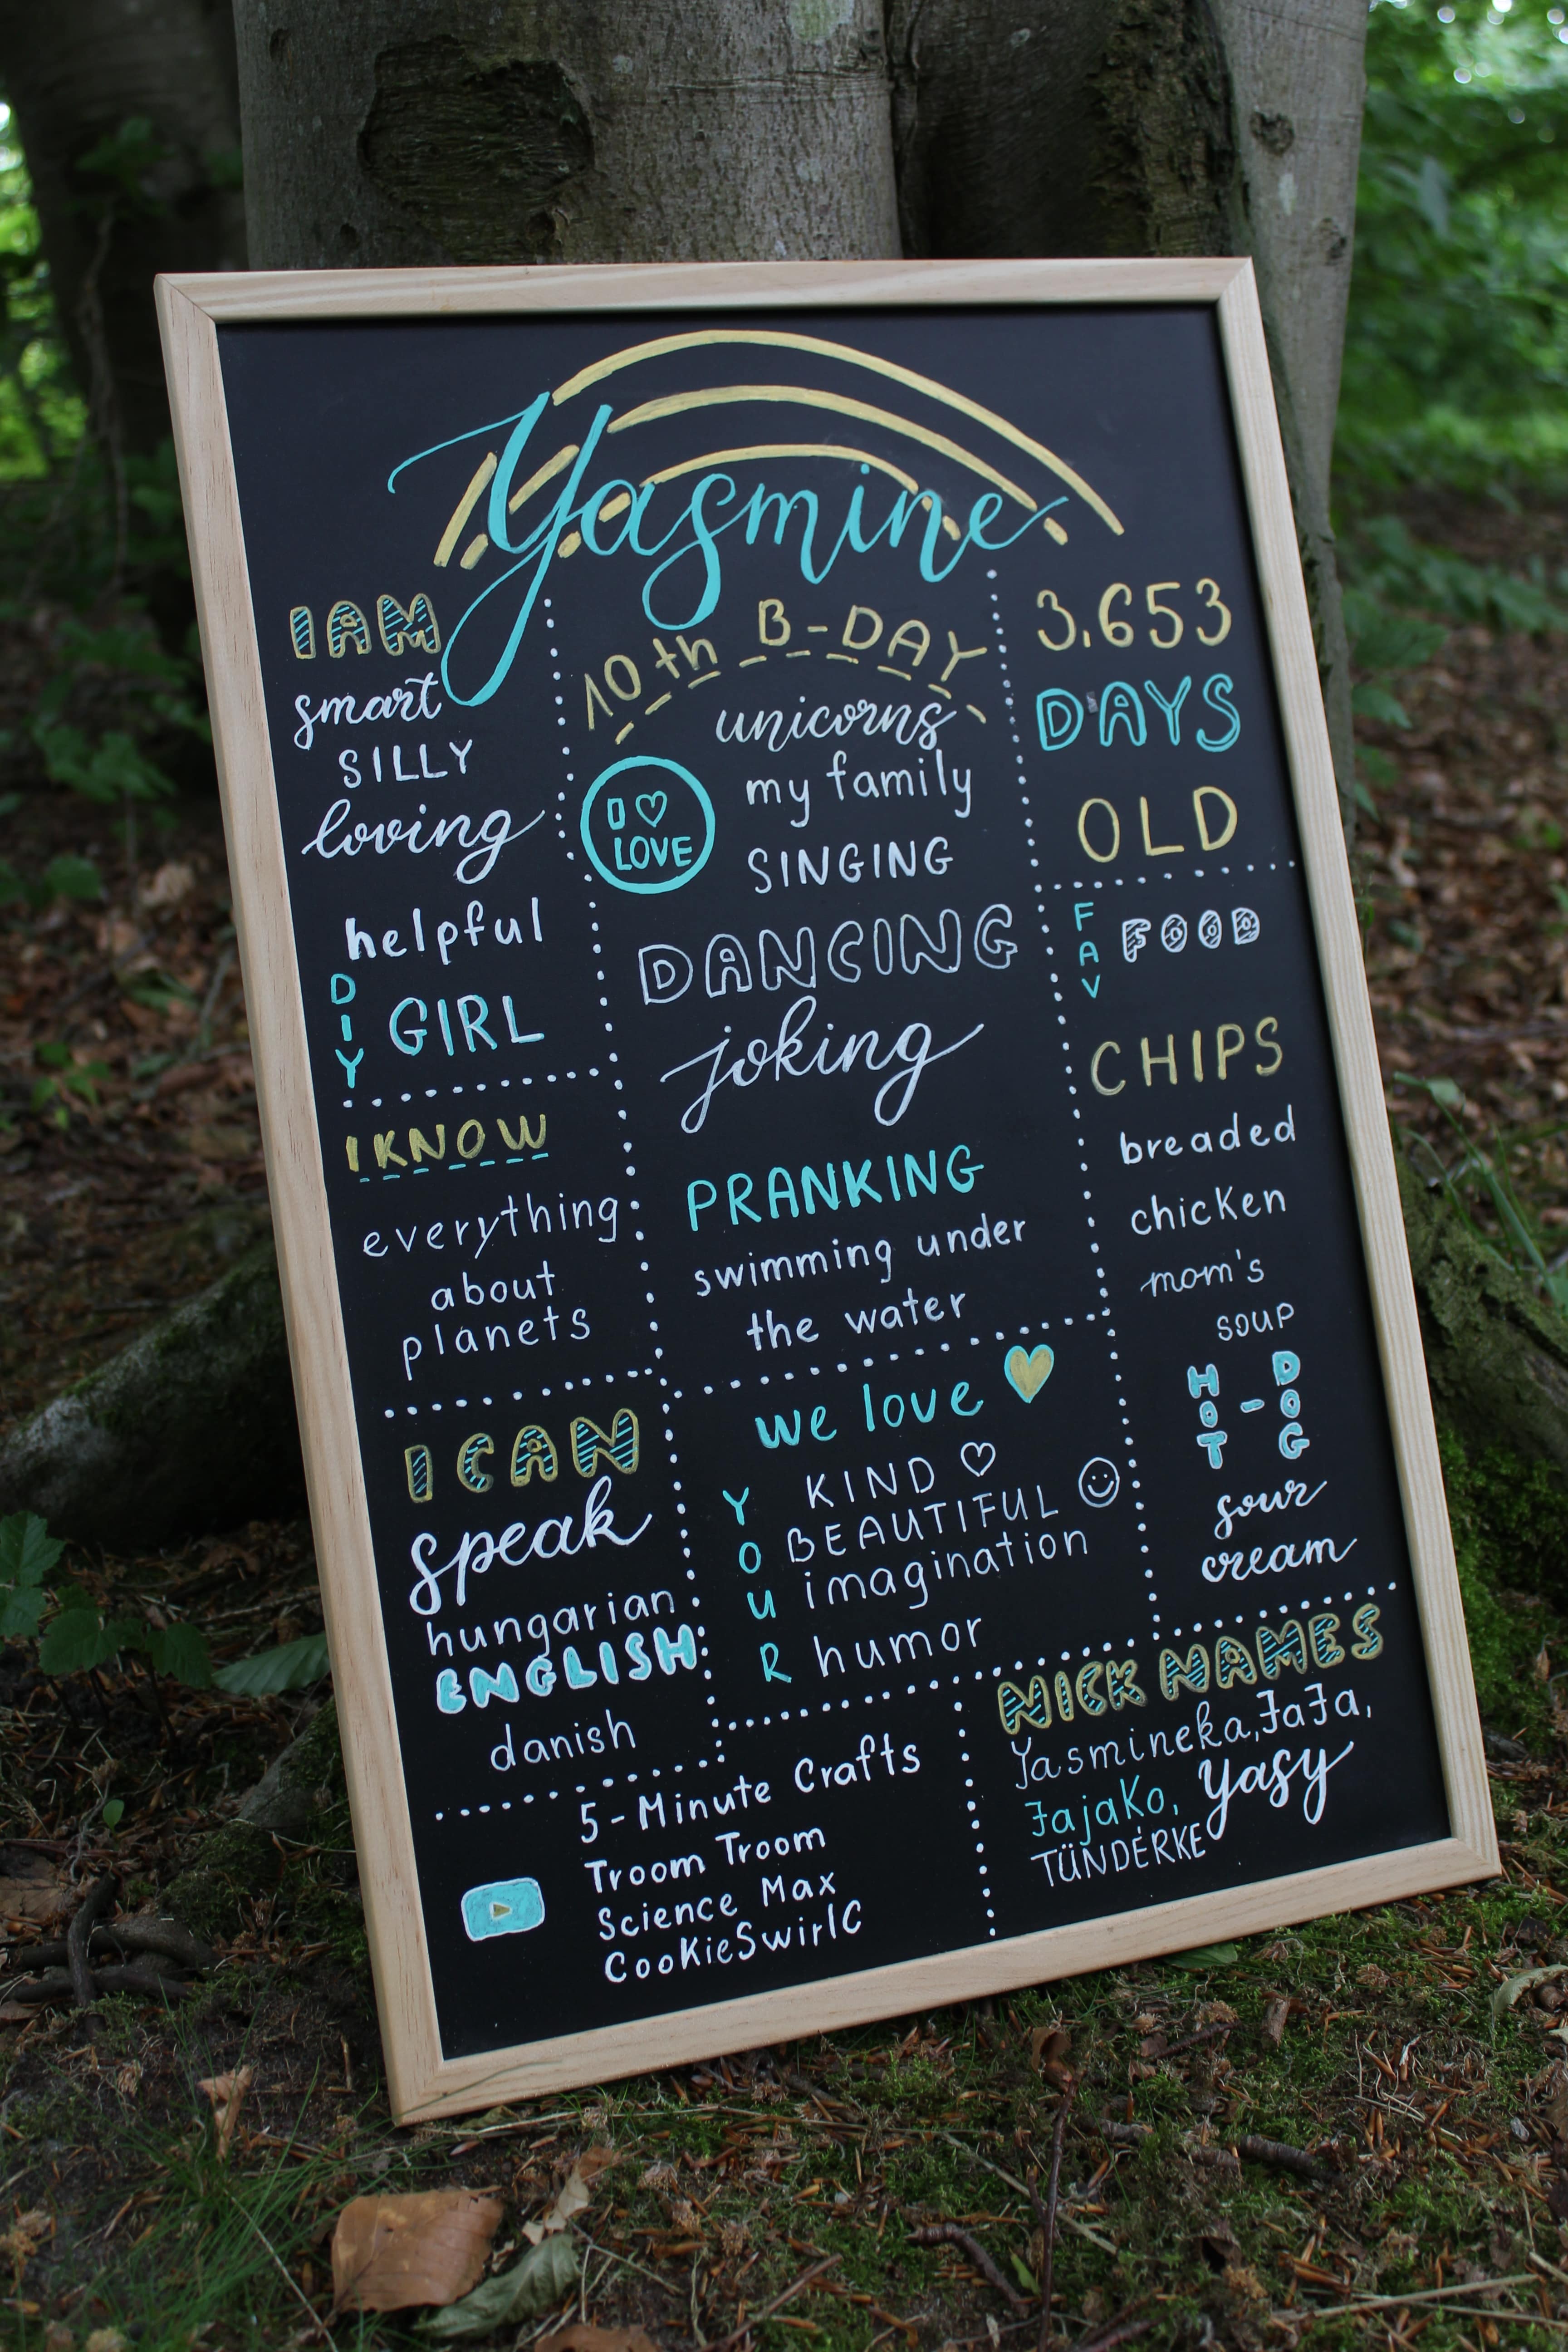 Yasmine
I AM
smart
SILLY
loving
helpful
DIY GIRL
I KNOW
everything
about
planets
I CAN
speak
hungarian
ENGLISH
danish
10th B-DAY
I ♡
LOVE
unicorns
my family
SINGING
DANCING
joking
PRANKING
swimming under
the water
we love
YOUR
KIND ♡
BEAUTIFUL ☺
imagination
humor
3,653
DAYS
OLD
FAV FOOD
CHIPS
breaded
chicken
mom's
soup
HOT-DOG
sour
cream
5-Minute Crafts
Troom Troom
Science Max
CooKieSwirlC
NICK NAMES
Yasmineka, JaJa,
JajaKo, Yasy
TÜNDÉRKE